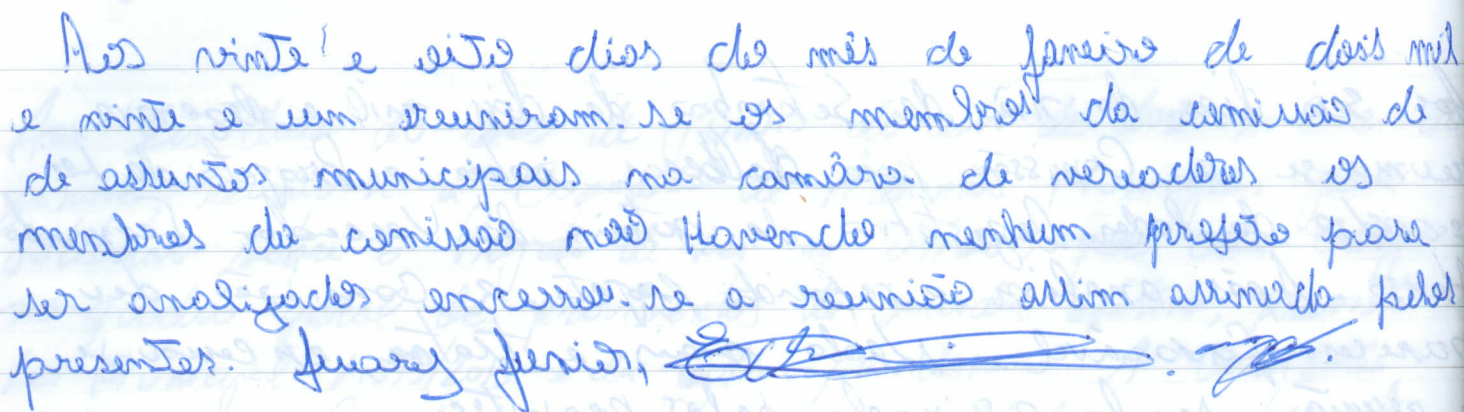 Aos vinte e oito dias do mês de Janeiro de dois mil
e vinte e um reuniram-se os membros da comissão de
de assuntos municipais na camâra de vereadores os
menbros da comissão não Havendo nenhum projeto para
ser analizados encerrou-se a reunião assim assinada pelos
presentes. Juarez Junior,